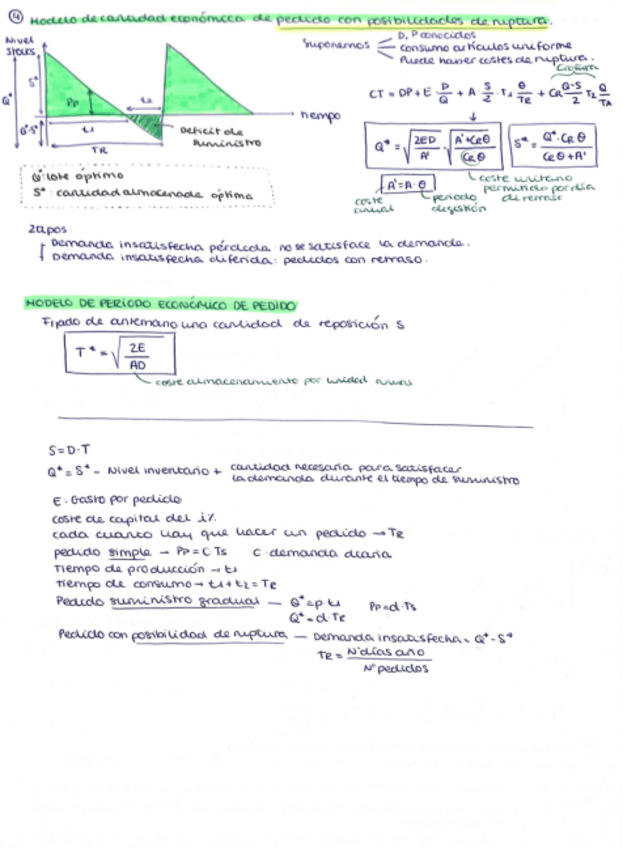 ④ Modelo de cantidad económica de pedido con posibilidades de ruptura.
Nivel stocks
Suponemos
D, P conocidos
consumo artículos uniforme
Puede haber costes de ruptura.
Q*
S*
Q*-S*
PP
t1
t2
TR
tiempo
Déficit de suministro
CT = DP + E · D/Q + A · S/2 · T1 · θ/TR + CR (Q-S)/2 T2 Q/TA
Q* = √(2ED/A') · √((A'+CRθ)/(CRθ))
S* = (Q* · CR θ)/(CR θ + A')
A' = A · θ
coste anual
periodo de gestión
coste unitario permitido por día de retraso
Q*: lote óptimo
S*: cantidad almacenada óptima
2 tipos
Demanda insatisfecha pérdida: no se satisface la demanda.
Demanda insatisfecha diferida: pedidos con retraso.
MODELO DE PERIODO ECONÓMICO DE PEDIDO
Fijado de antemano una cantidad de reposición S
T* = √(2E/AD)
coste almacenamiento por unidad anual
S = D · T
Q* = S* - Nivel inventario + cantidad necesaria para satisfacer
la demanda durante el tiempo de suministro
E: Gasto por pedido
coste de capital del i%.
cada cuanto hay que hacer un pedido → TR
pedido simple → PP = C · Ts C: demanda diaria
Tiempo de producción → t1
tiempo de consumo → t1 + t2 = TR
Pedido suministro gradual — Q* = p · t1 PP = d · Ts
Q* = d · TR
Pedido con posibilidad de ruptura — Demanda insatisfecha = Q* - S*
TR = Nº días año / Nº pedidos